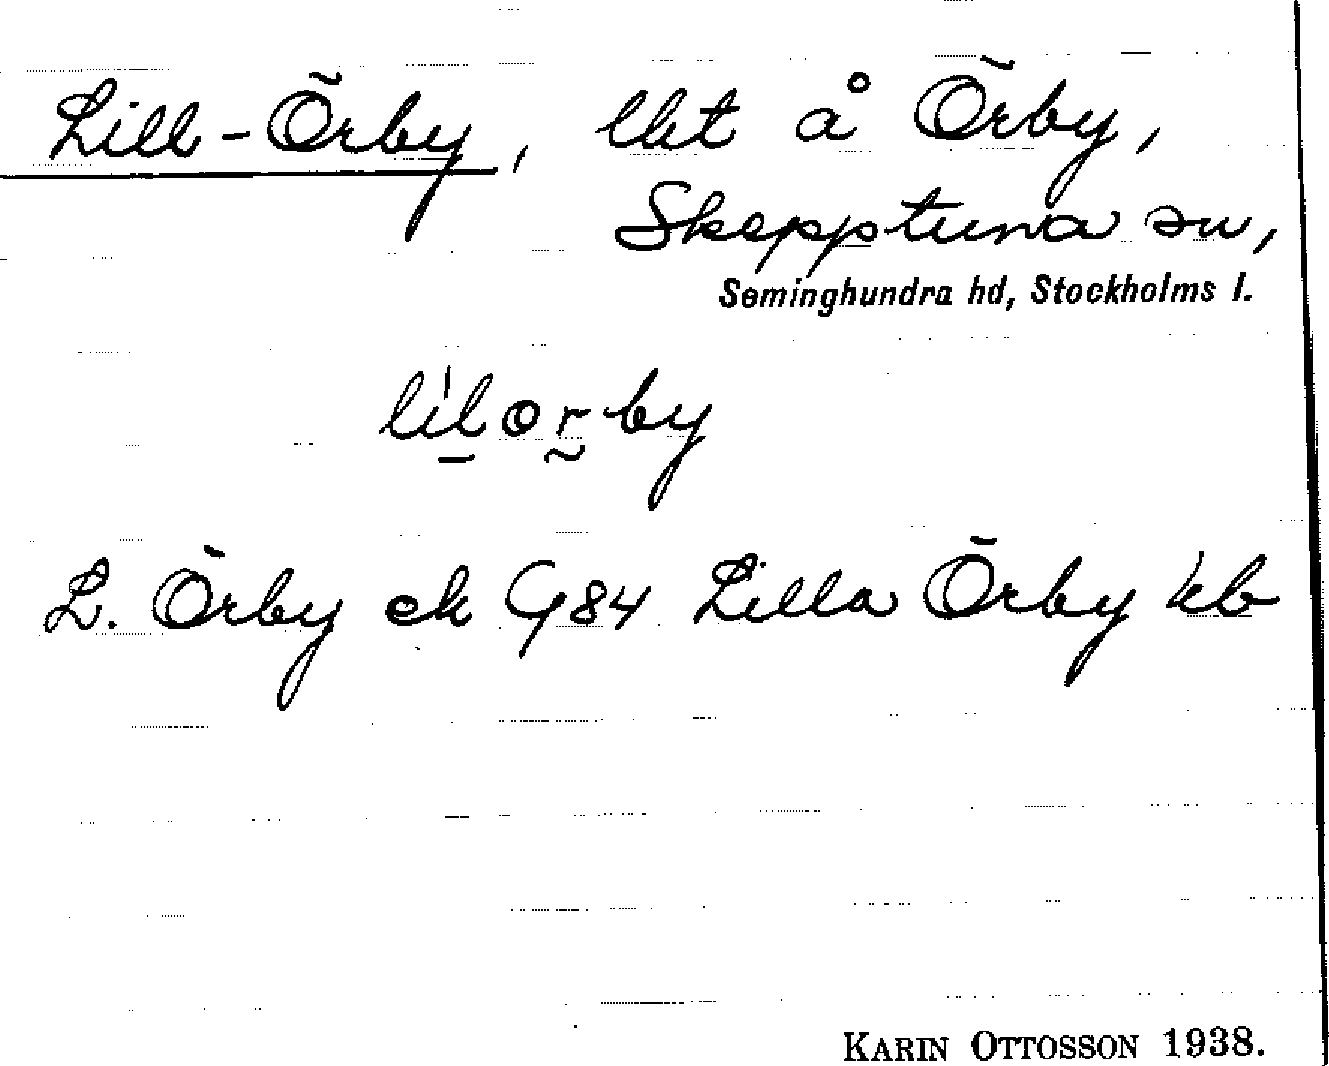 Lill-Örby, lht å Örby,
Skepptuna sn,
Seminghundra hd, Stockholms l.
lilörby
L. Örby ek G84 Lilla Örby kb
KARIN OTTOSSON 1938.